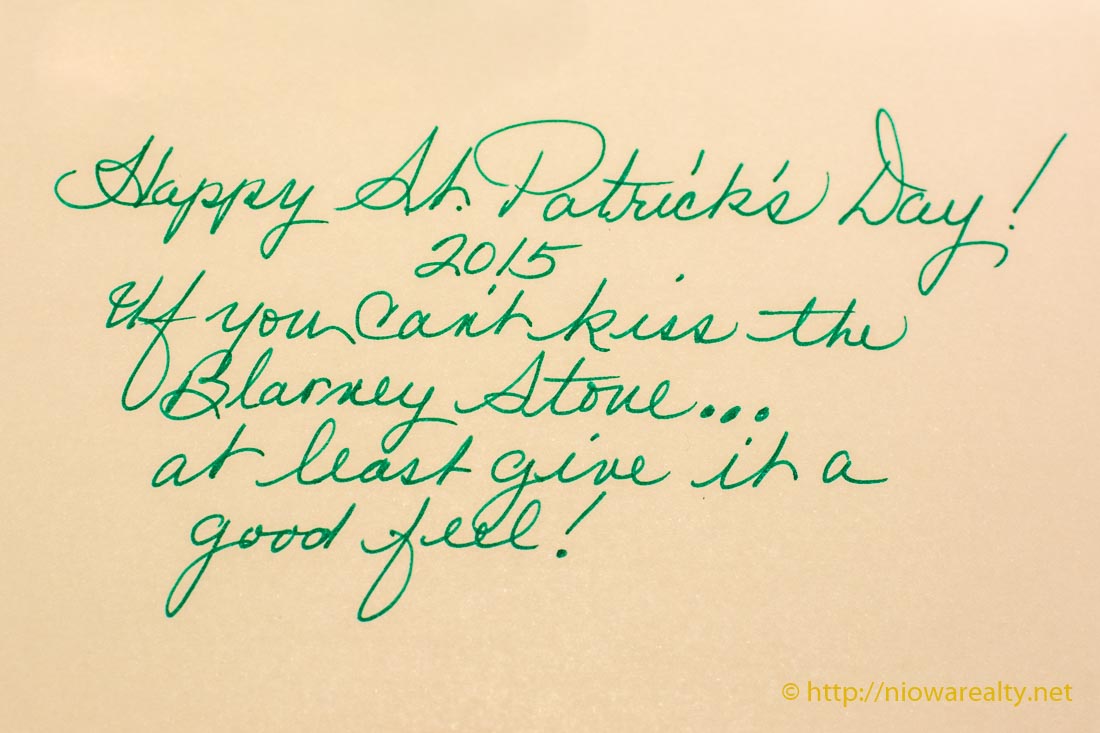 Happy St. Patrick's Day!
2015
If you can't kiss the
Blarney Stone...
at least give it a
good feel!
© http://niowarealty.net